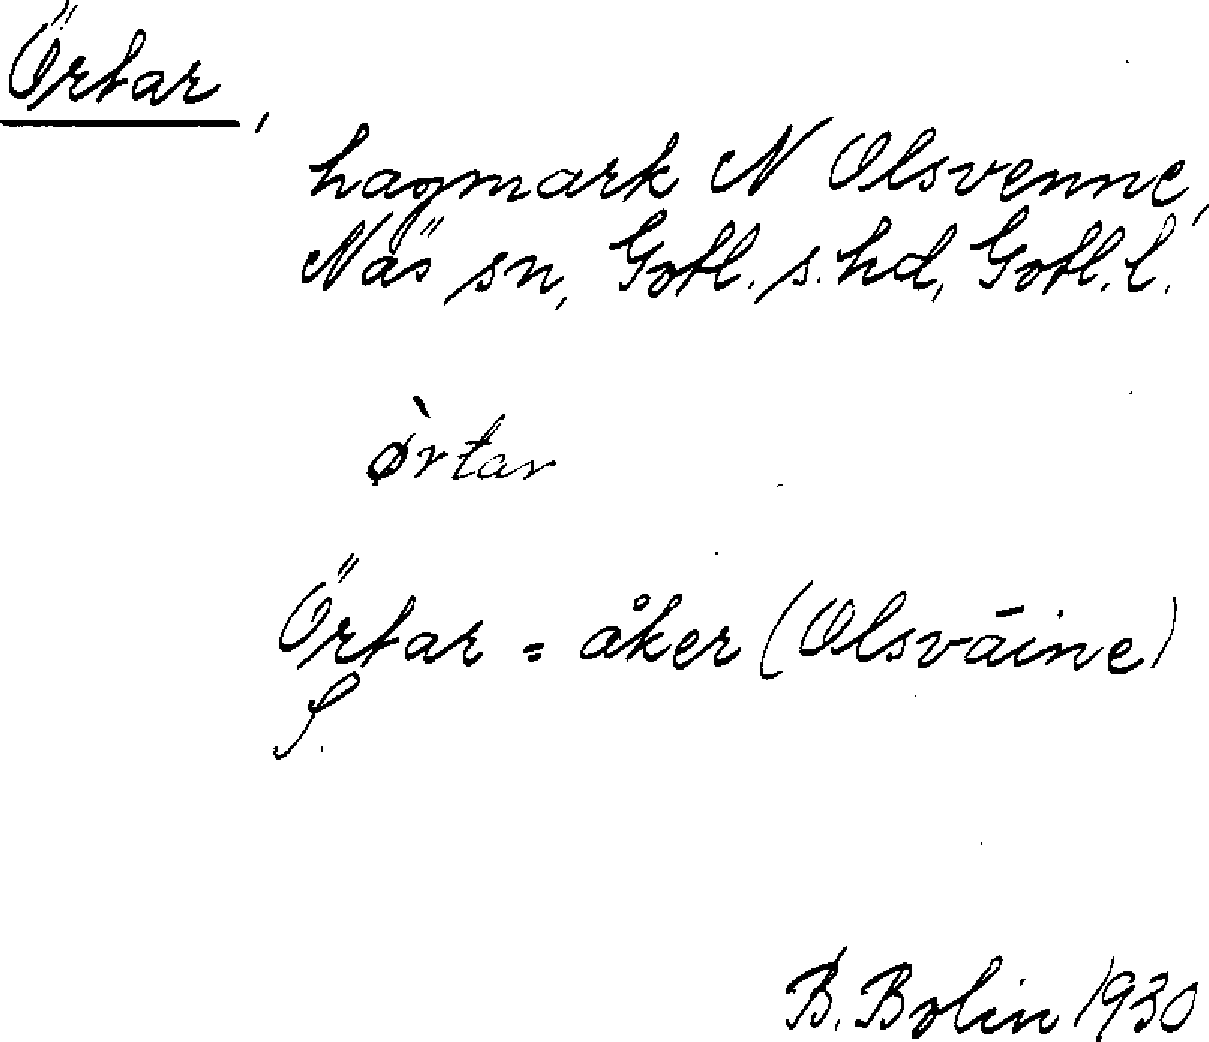 Örtar,
hagmark N Olsvenne,
Näs sn, Gotl. s. hd, Gotl. l.
ø̀rtar
Örtar = åker (Olsvāine)
S.
B. Bolin 1930